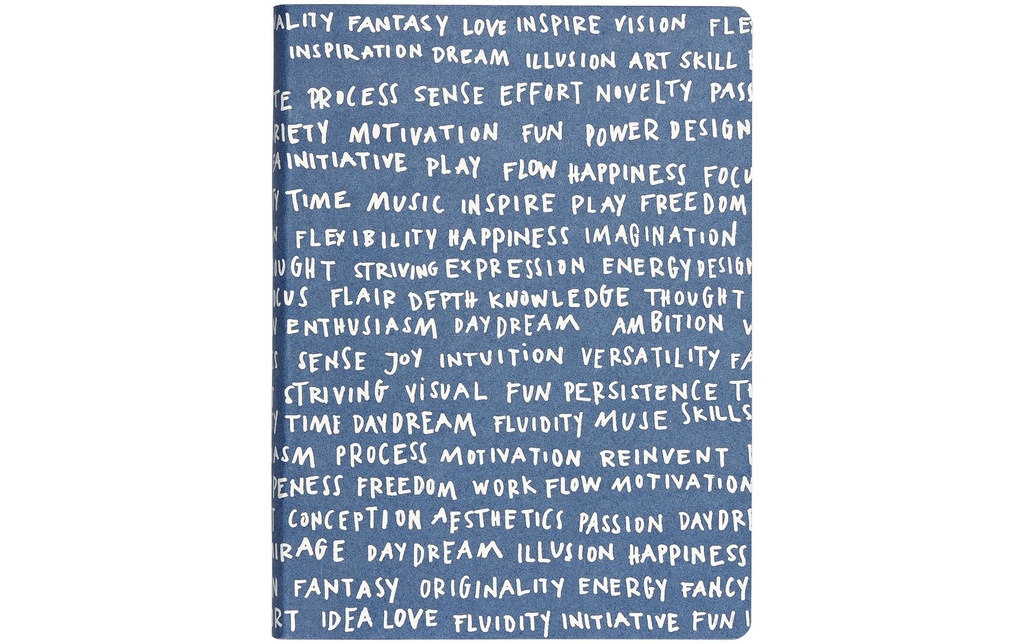 ALITY FANTASY LOVE INSPIRE VISION FLE
INSPIRATION DREAM ILLUSION ART SKILL
TE PROCESS SENSE EFFORT NOVELTY PASS
RIETY MOTIVATION FUN POWER DESIGN
EA INITIATIVE PLAY FLOW HAPPINESS FOCU
Y TIME MUSIC INSPIRE PLAY FREEDOM
N FLEXIBILITY HAPPINESS IMAGINATION
UGHT STRIVING EXPRESSION ENERGY DESIGN
CUS FLAIR DEPTH KNOWLEDGE THOUGHT
ENTHUSIASM DAYDREAM AMBITION V
S SENSE JOY INTUITION VERSATILITY FA
STRIVING VISUAL FUN PERSISTENCE TH
Y TIME DAYDREAM FLUIDITY MUSE SKILLS
ASM PROCESS MOTIVATION REINVENT
PENESS FREEDOM WORK FLOW MOTIVATION
T CONCEPTION AESTHETICS PASSION DAYDRE
IRAGE DAYDREAM ILLUSION HAPPINESS
N FANTASY ORIGINALITY ENERGY FANCY
RT IDEA LOVE FLUIDITY INITIATIVE FUN I